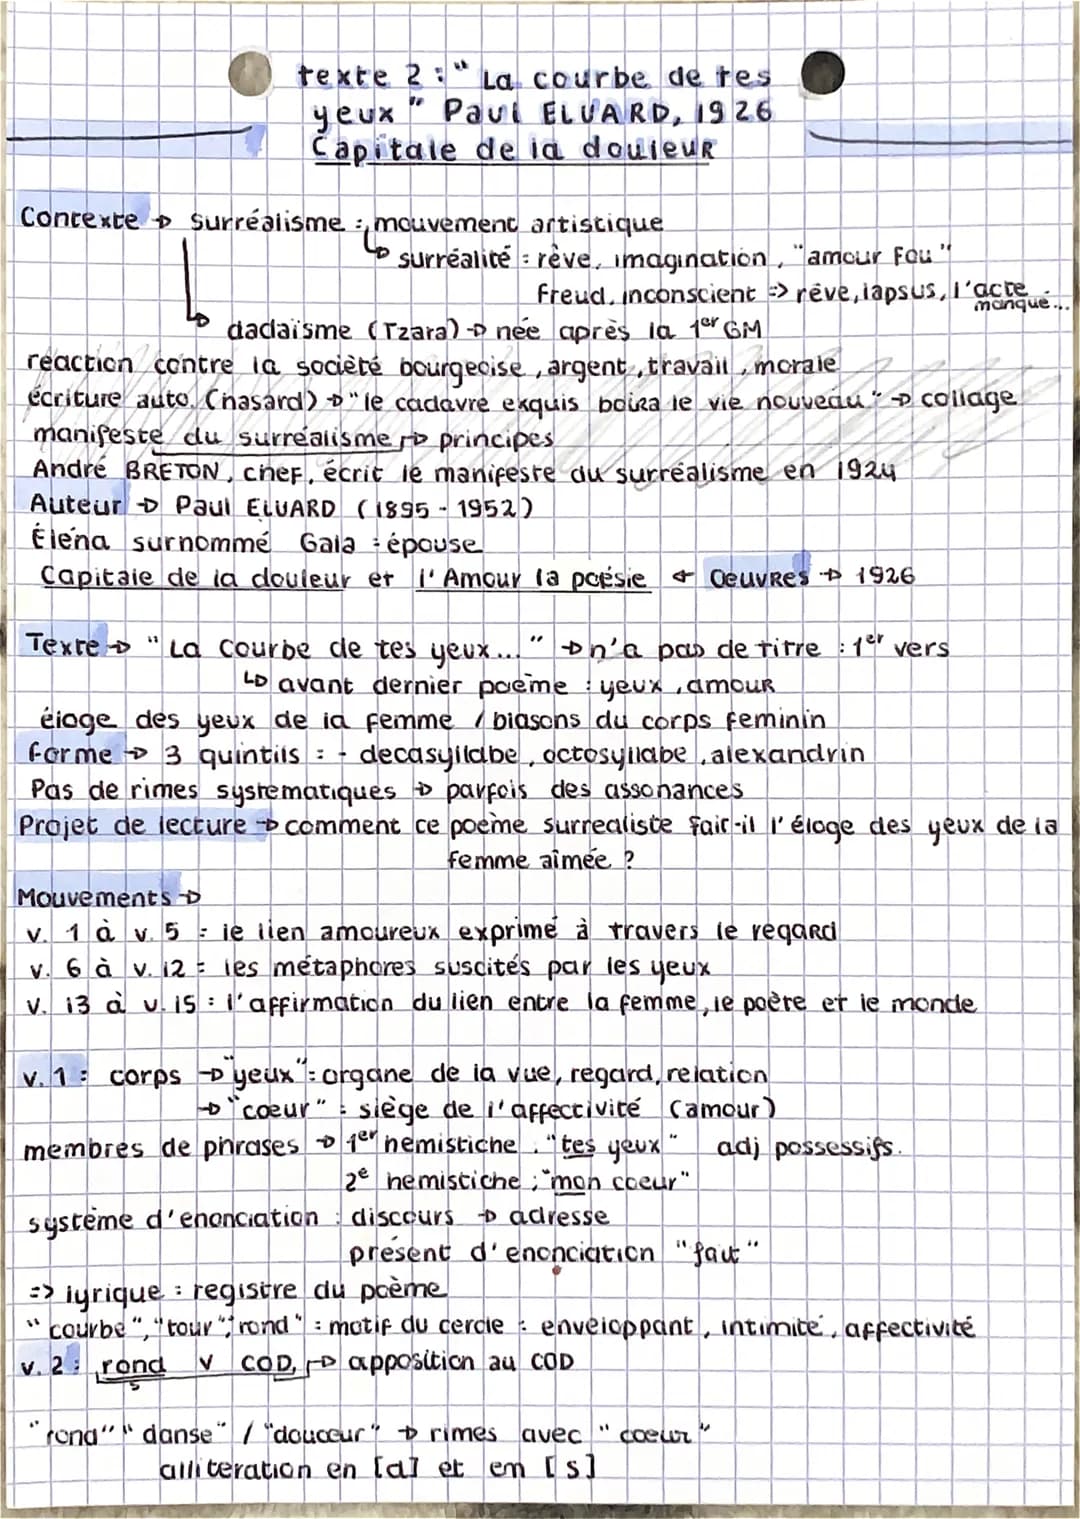 texte 2 : " La courbe de tes
yeux " Paul ELUARD, 1926
Capitale de la douleur
Contexte → surréalisme : mouvement artistique
↳ surréalité : rêve, imagination, "amour fou"
Freud, inconscient => rêve, lapsus, l'acte manqué...
↳ dadaïsme (Tzara) → née après la 1er GM
réaction contre la société bourgeoise, argent, travail, morale
écriture auto. (hasard) → "le cadavre exquis boira le vie nouveau" → collage
manifeste du surréalisme → principes
André BRETON, chef, écrit le manifeste du surréalisme en 1924
Auteur → Paul ELUARD (1895 - 1952)
Éléna surnommé Gala : épouse
Capitale de la douleur et l'Amour la poésie ← Oeuvres → 1926
Texte → "La courbe de tes yeux..." → n'a pas de titre : 1er vers
↳ avant dernier poème : yeux, amour
éloge des yeux de la femme / blasons du corps feminin
forme → 3 quintils : - decasyllabe, octosyllabe, alexandrin
Pas de rimes systematiques → parfois des assonances
Projet de lecture → comment ce poème surrealiste fait-il l'éloge des yeux de la
femme aimée ?
Mouvements →
v. 1 à v. 5 : le lien amoureux exprimé à travers le regard
v. 6 à v. 12 : les métaphores suscités par les yeux
v. 13 à v. 15 : l'affirmation du lien entre la femme, le poète et le monde
v. 1 : corps → "yeux" : organe de la vue, regard, relation
→ "coeur" : siège de l'affectivité (amour)
membres de phrases → 1er hemistiche : "tes yeux" adj possessifs.
2e hemistiche : "mon coeur"
système d'enonciation : discours → adresse
présent d'enonciation "fait"
=> lyrique : registre du poème
"courbe", "tour", "rond" : motif du cercle : enveloppant, intimité, affectivité
v. 2 : rond v COD, → apposition au COD
s
"rond" "danse" / "douceur" → rimes avec "coeur"
alliteration en [d] et en [s]